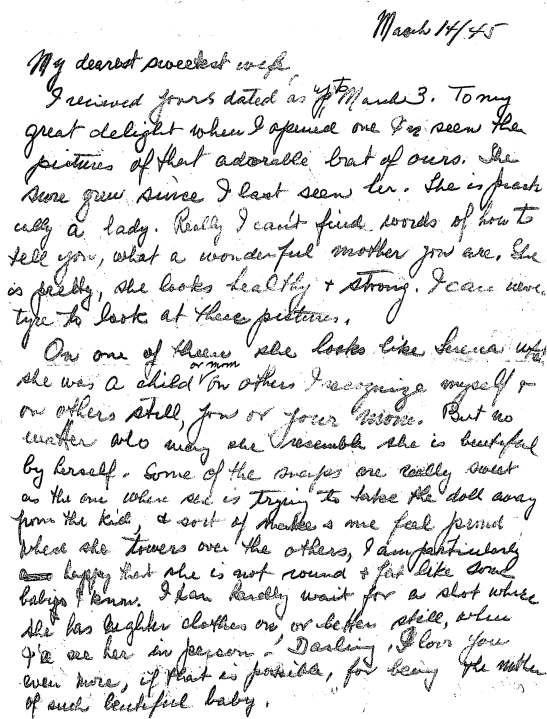 March 14/45
My dearest sweetest wife,
I recieved yours dated as up to March 3. To my
great delight when I opened one I've seen the
pictures of that adorable brat of ours. She
sure grew since I last seen her. She is pract
ically a lady. Really I can't find words of how to
tell you, what a wonderful mother you are. She
is pretty, she looks healthy + strong. I can never
tyre to look at these pictures.
On one of them she looks like Serena when
she was a child or mom on others I recognize myself +
on others still, you or your mom. But no
matter who may she resemble she is beutiful
by herself. Some of the snaps are really sweet
as the one where she is trying to take the doll away
from the kid, + sort of makes me feel proud
when she towers over the others, I am particularly
happy that she is not round + fat like some
babies I know. I can hardly wait for a shot where
she has lighter clothes on or better still, when
I'll see her in person. Darling, I love you
even more, if that is possible, for being the mother
of such beutiful baby.